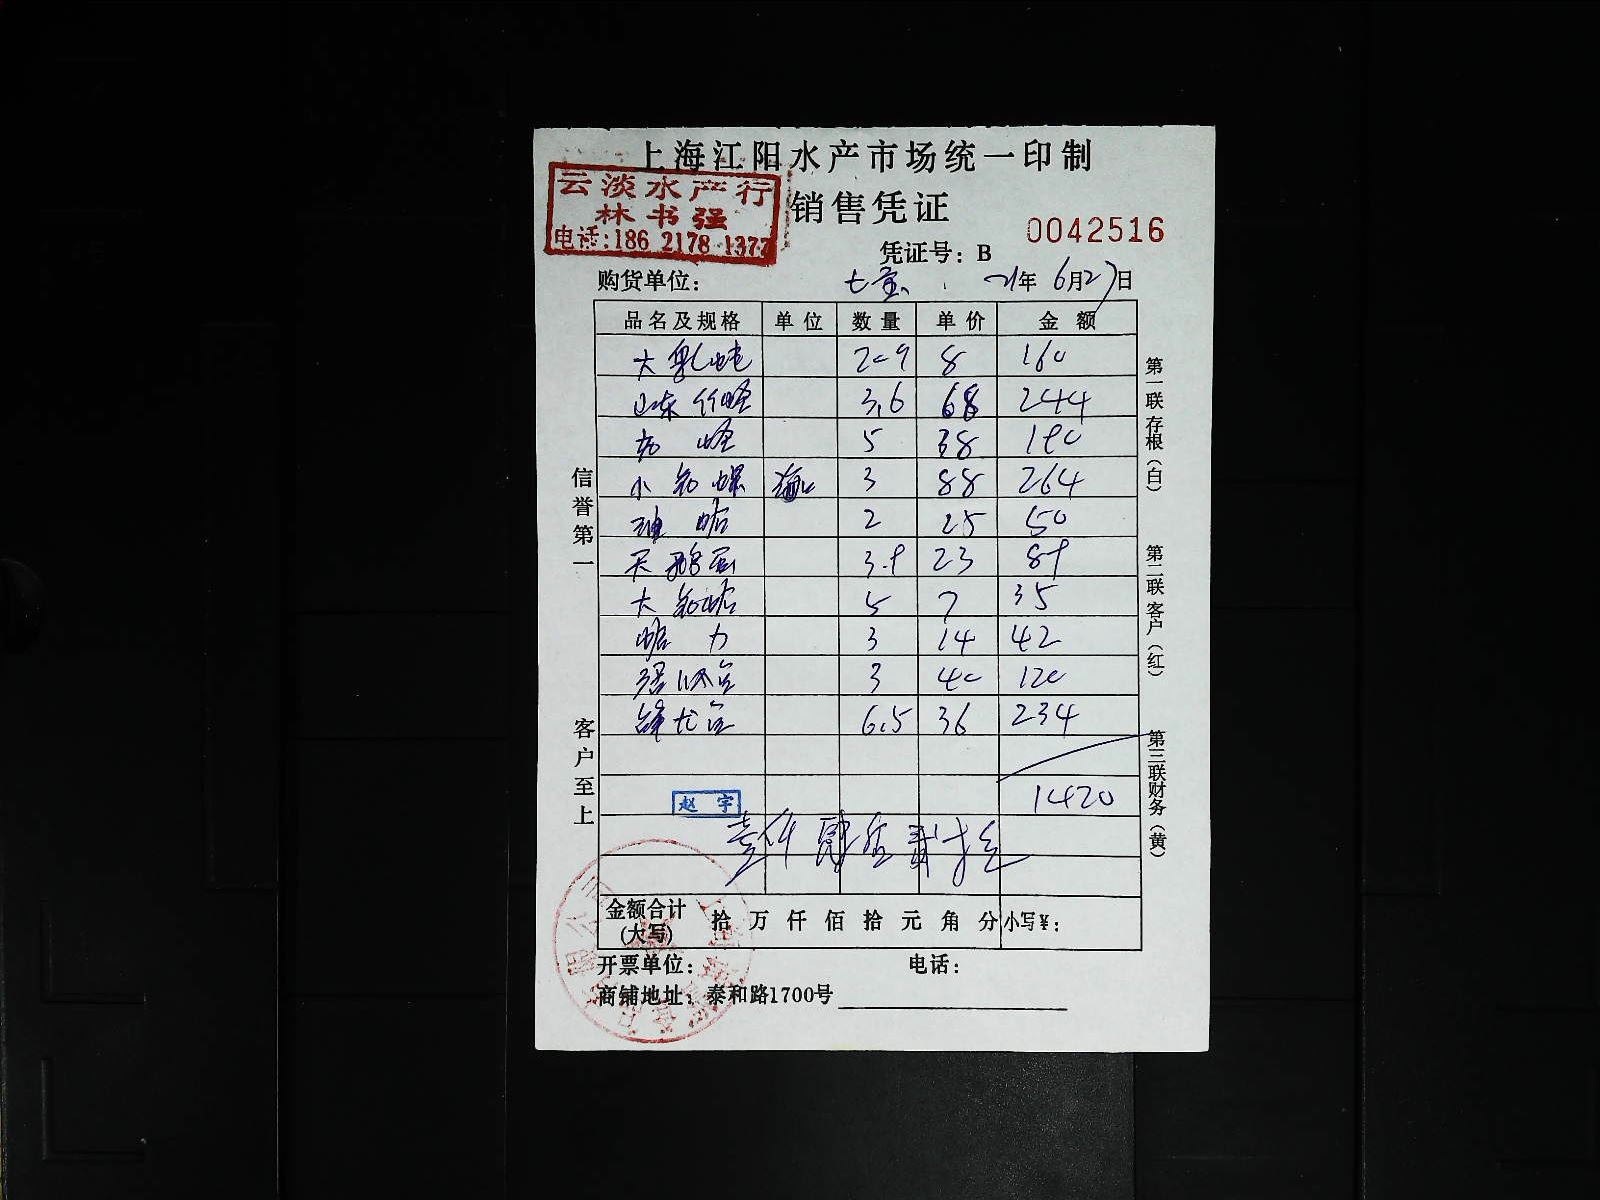 上海江阳水产市场统一印制
云淡水产行
林书强
电话:186 2178 1377
销售凭证
0042516
凭证号：B
购货单位： 七宝 21年6月27日
品名及规格 单位 数量 单价 金额
大 8 160
山东 3.6 68 244
5 38 190
小 3 88 264
2 25 50
天鹅蛋 3.9 23 89
大 5 7 35
3 14 42
3 40 120
6.5 36 234
1420
赵宇
壹仟肆佰贰拾
金额合计(大写) 拾万仟佰拾元角分 小写¥：
开票单位： 电话：
商铺地址：泰和路1700号
信誉第一
客户至上
第一联存根（白）
第二联客户（红）
第三联财务（黄）